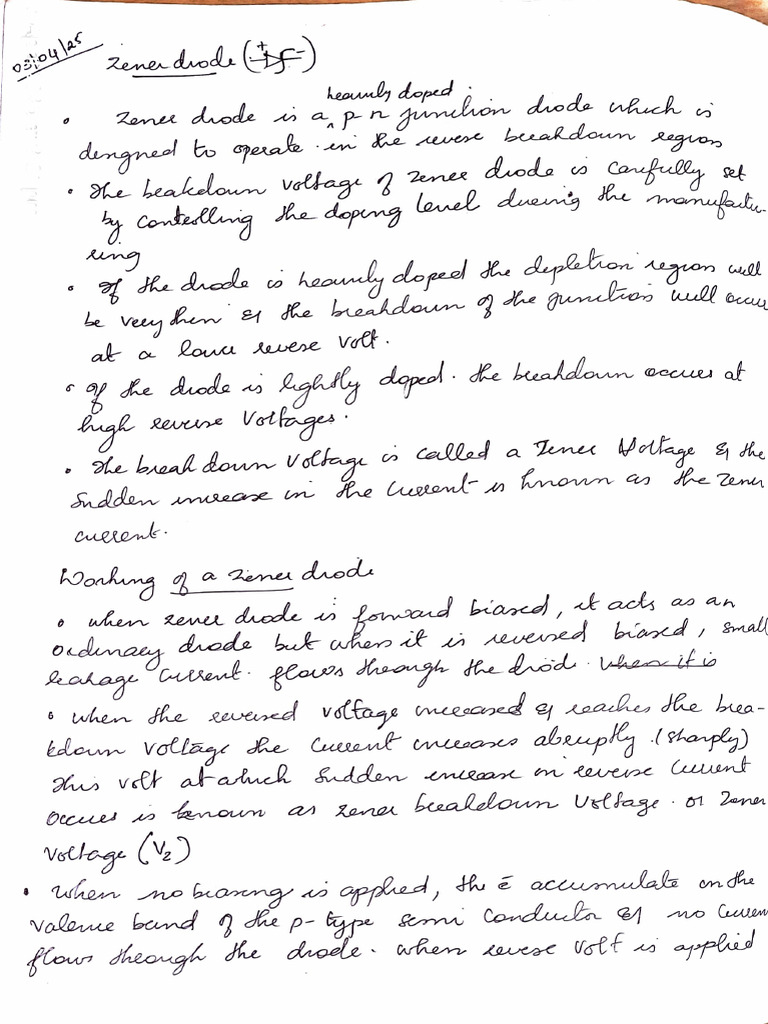 03/04/25
Zener diode (+ -)
heavily doped
• Zener diode is a p n junction diode which is
designed to operate in the reverse breakdown region
• The beakdown voltage of zener diode is carefully set
by controlling the doping level during the manufactu-
ring
• If the diode is heavily doped the depletion region will
be very thin & the breakdown of the junction will occur
at a lower reverse volt.
• If the diode is lightly doped. the breakdown occurs at
high reverse voltages.
• The break down voltage is called a Zener Voltage & the
Sudden increase in the current is known as the zener
current.
Working of a zener diode
• when zener diode is forward biased, it acts as an
ordinary diode but when it is reversed biased, small
leakage current. flows through the diode. when it is
• when the reversed voltage increased & reaches the brea-
kdown voltage the current increases abruptly. (sharply)
This volt at which sudden increase in reverse current
occurs is known as zener breakdown voltage. or Zener
voltage (Vz)
• When no biasing is applied, the ē accumulate on the
valence band of the p-type semi conductor & no curren
flows through the diode. when reverse volt is applied